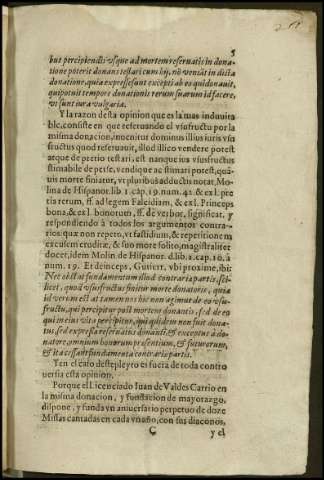 5
bus percipiendis vsque ad mortem reseruatis in dona-
tione poterit donans testari cum hij, nō veniāt in dicta
donatione, quia expresse sunt excepti ab eo qui donauit,
qui potuit tempore donationis rerum suarum id facere,
vt sunt iura vulgaria.
Y la razon desta opinion que es la mas induuita
ble, consiste en que reseruando el vsufructu por la
misma donacion, inocuitur dominus illius iuris vsu
fructus quod reseruauit, illud illico vendere potest
atque de pretio testari, est nanque ius vsusfructus
stimabile de perse, vendique ac stimari potest, quā
uis morte finiatur, vt pluribus adductis notat, Mo
lina de Hispanor. lib. 1. cap. 19. num. 42. & ex l. pre
tia rerum, ff. ad legem Falcidiam, & ex l. Princeps
bona, & ex l. bonorum, ff. de verbor, significat, y
respondiendo à todos los argumentos contra-
rios: quæ non repeto, vt fastidium, & repetitionem
excusem eruditæ, & suo more solito, magistraliter
docet, idem Molin de Hispanor. d. lib. 1. cap. 10. à
num. 19. Er deinceps, Gutierr. vbi proxime, ibi:
Nec obstat fundamentum illud contraria partis, sci-
licet, quod vsusfructus finitur morte donatoris, quia
id verum est at tamen nos hic non agimus de eo vsu-
fructu, qui percipitur post mortem donantis, sed de eo
qui in eius vita percipitur, qui quidem non fuit dona-
tus, sed expresse reseruatus donanti, & exceptus à do-
natore, omnium bonorum presentium, & futurorum,
& ita cessant fundamenta contrariæ partis.
Y en el caso deste pleyto es fuera de toda contro
uersia esta opinion.
Porque el Licenciado Iuan de Valdes Carrio en
la misma donacion, y fundacion de mayorazgo,
dispone, y funda vn aniuersario perpetuo de doze
Missas cantadas en cada vn año, con sus diaconos,
C
y el